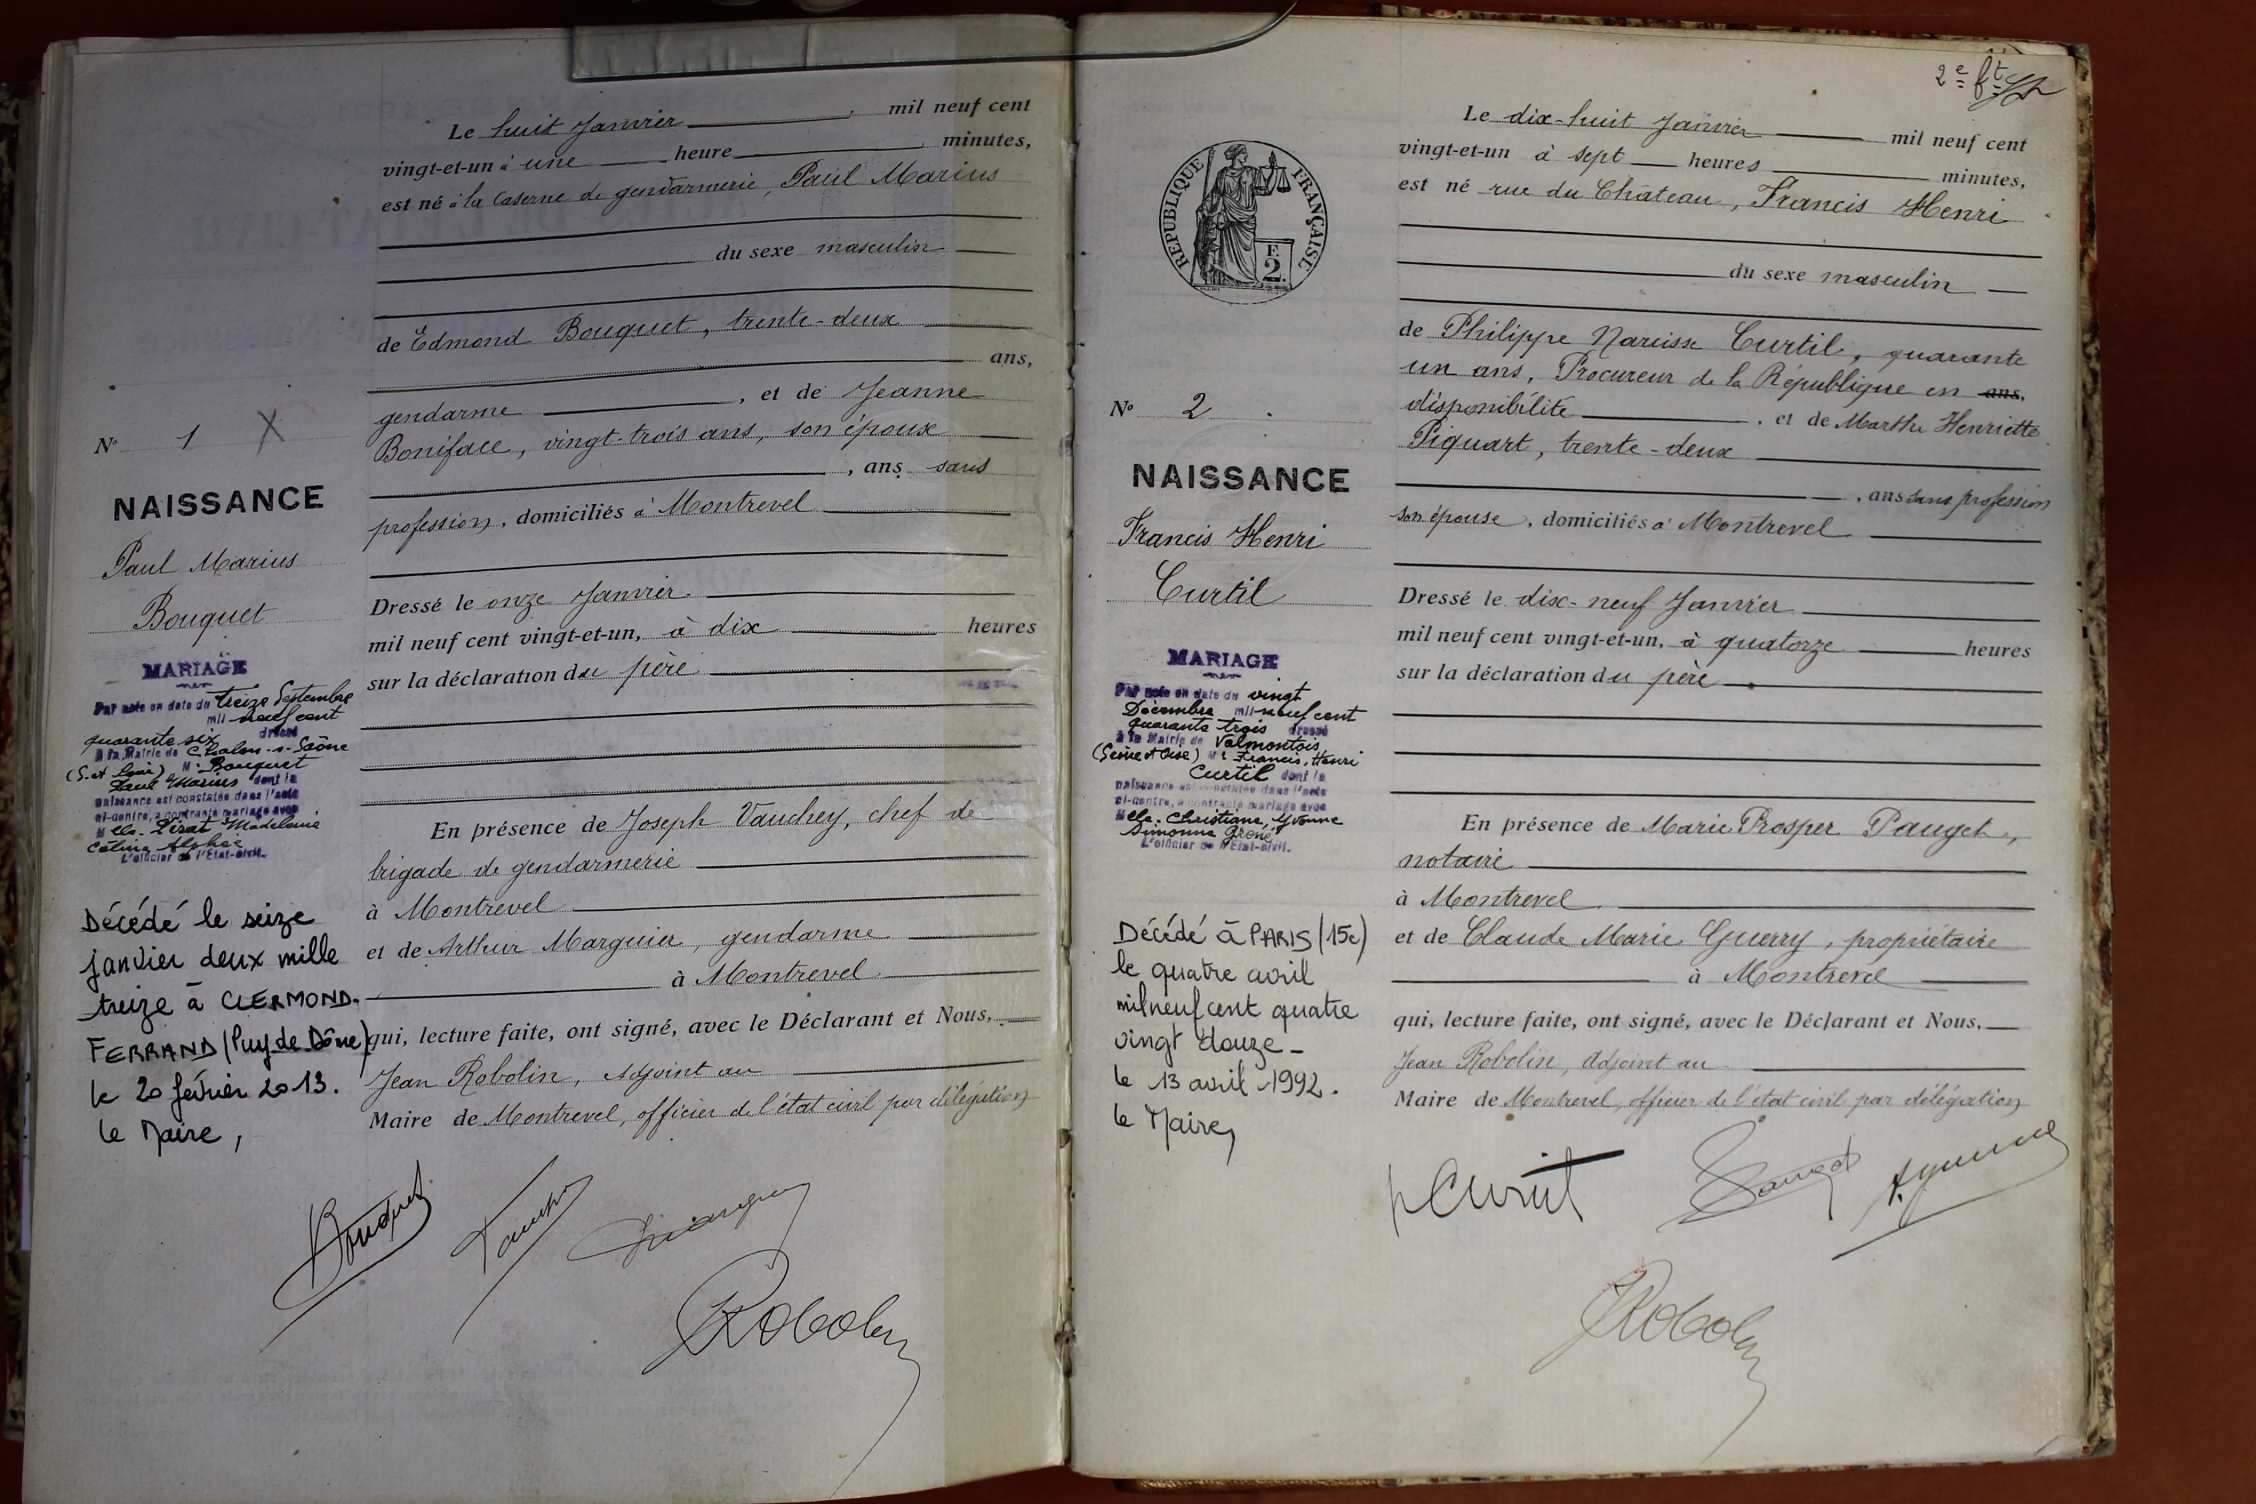 Le huit Janvier mil neuf cent
vingt-et-un à une heure minutes,
est né à la Caserne de gendarmerie, Paul Marius
du sexe masculin
de Edmond Bouquet, trente-deux
ans,
gendarme , et de Jeanne
Boniface, vingt-trois ans, son épouse
, ans sans
profession, domiciliés à Montrevel
Dressé le onze Janvier
mil neuf cent vingt-et-un, à dix heures
sur la déclaration du père
En présence de Joseph Vauchey, chef de
brigade de gendarmerie
à Montrevel
et de Arthur Marguier, gendarme
à Montrevel
qui, lecture faite, ont signé, avec le Déclarant et Nous,
Jean Robolin, adjoint au
Maire de Montrevel, officier de l'état civil par délégation
Bouquet
Robolin
N° 1 X
NAISSANCE
Paul Marius
Bouquet
MARIAGE
Par acte en date du treize Septembre
mil neuf cent
quarante six dressé
à la Mairie de Chalon-s-Saône
(S. et Loire) Mr Bouquet
Paul Marius dont la
naissance est constatée dans l'acte
ci-contre, a contracté mariage avec
Melle Madeleine
L'officier de l'Etat-civil.
Décédé le seize
janvier deux mille
treize à CLERMOND-
FERRAND (Puy de Dôme)
le 20 février 2013.
le Maire,
2e ft
RÉPUBLIQUE FRANÇAISE
F.
2.
Le dix-huit Janvier mil neuf cent
vingt-et-un à sept heures minutes,
est né rue du Château, Francis Henri
du sexe masculin
de Philippe Narcisse Curtil, quarante
un ans, Procureur de la République en ans,
disponibilité , et de Marthe Henriette
Piquart, trente-deux
, ans sans profession
son épouse, domiciliés à Montrevel
Dressé le dix-neuf Janvier
mil neuf cent vingt-et-un, à quatorze heures
sur la déclaration du père
En présence de Marie Prosper Pauget,
notaire
à Montrevel
et de Claude Marie Guerry, propriétaire
à Montrevel
qui, lecture faite, ont signé, avec le Déclarant et Nous,
Jean Robolin, adjoint au
Maire de Montrevel, officier de l'état civil par délégation
P Curtil
Pauget
Robolin
N° 2
NAISSANCE
Francis Henri
Curtil
MARIAGE
Par acte en date du vingt
Décembre mil neuf cent
quarante trois dressé
à la Mairie de Valmondois
(Seine et Oise) Mr Francis, Henri
Curtil dont la
naissance est constatée dans l'acte
ci-contre, a contracté mariage avec
Melle Christiane, Yvonne
Simonne
L'officier de l'Etat-civil.
Décédé à PARIS (15e)
le quatre avril
mil neuf cent quatre
vingt douze -
le 13 avril 1992.
le Maire,